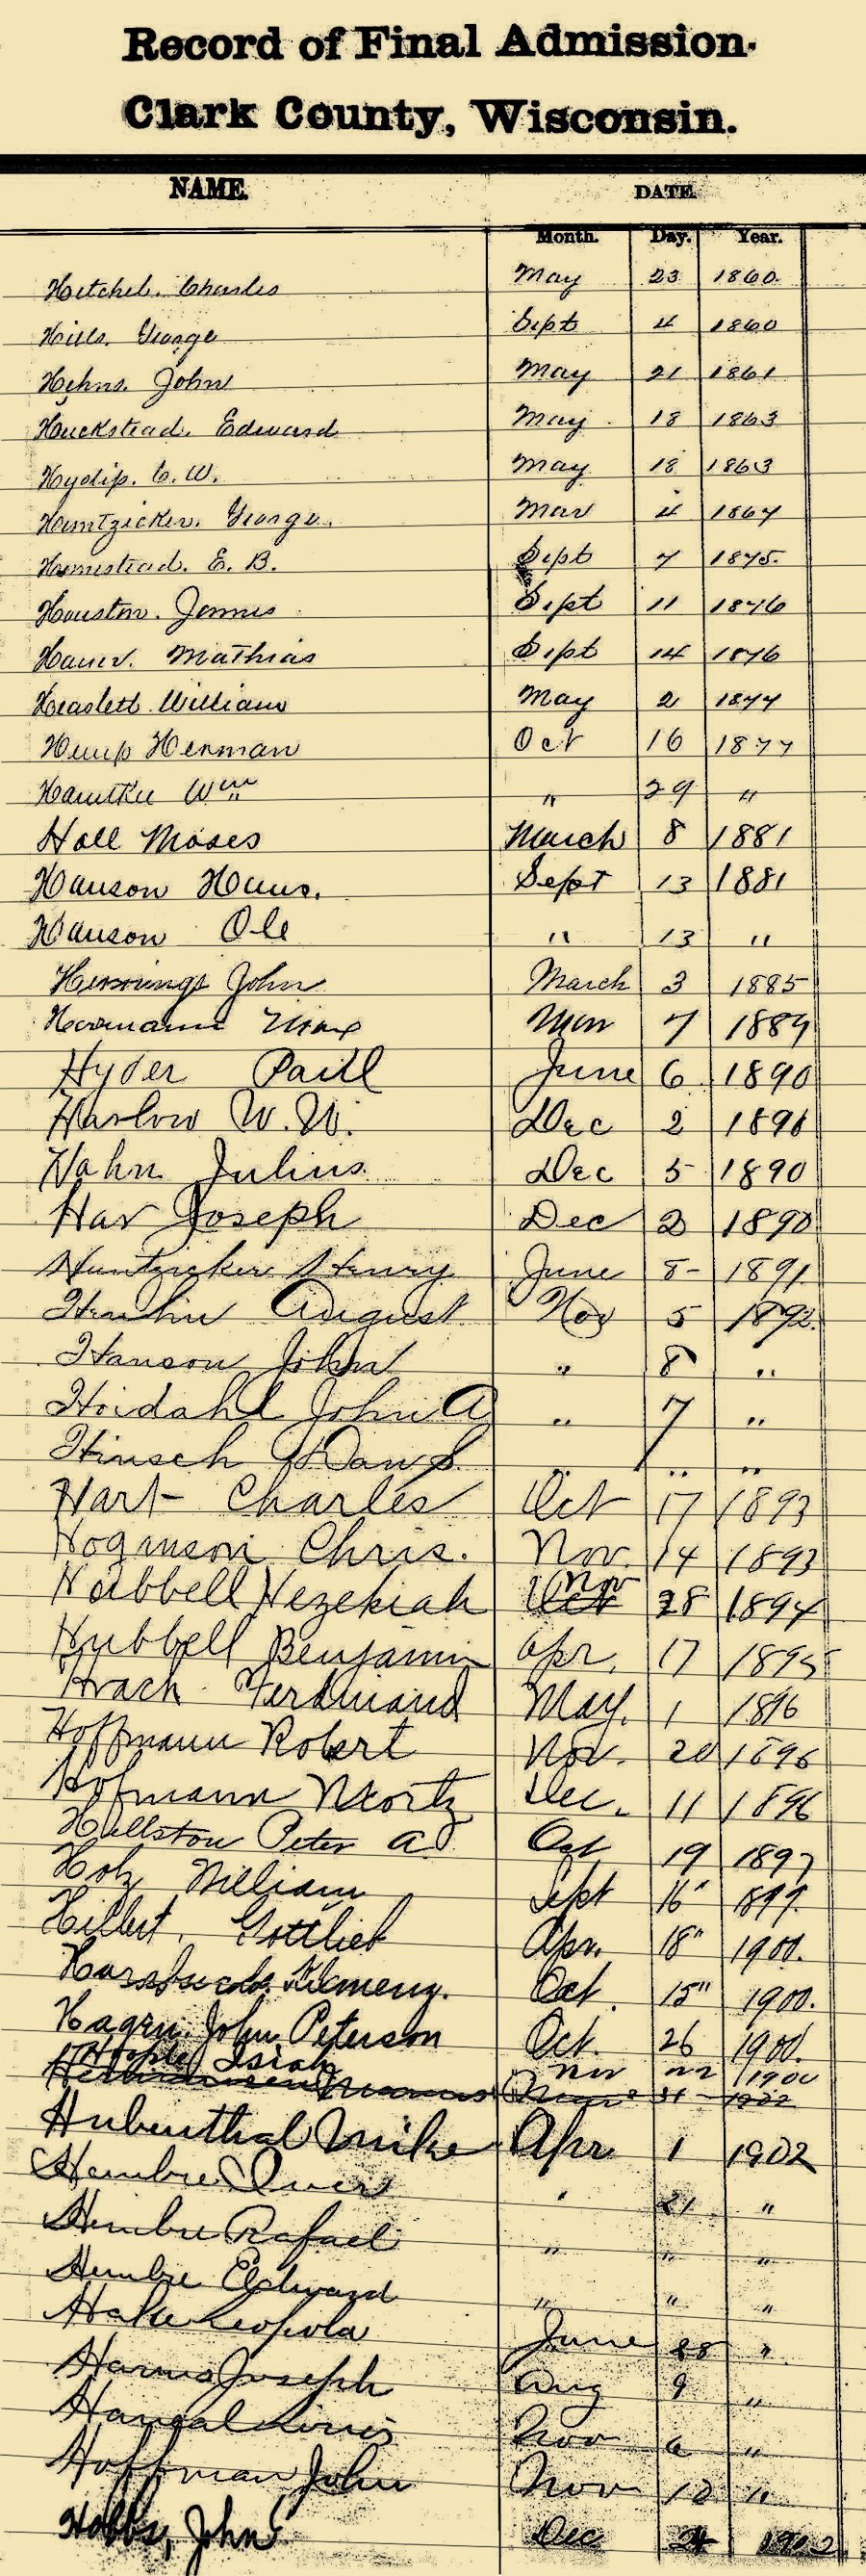 Record of Final Admission.
Clark County, Wisconsin.
NAME. DATE.
Month. Day. Year.
Hetchel. Charles May 23 1860.
Hills. George Sept 4 1860
Hehns. John May 21 1861
Huckstead. Edward May 18 1863
Hyslip. C. W. May 18 1863
Huntzicker. George. Mar 4 1864
Homestead. E. B. Sept 7 1875.
Houston. James Sept 11 1876
Hauer. Mathias Sept 14 1876
Heaslett William May 2 1877
Hemp Herman Oct 16 1877
Wm " 29 "
Hall Moses March 8 1881
Hanson Hans. Sept 13 1881
Hanson Ole " 13 "
Hennings John March 3 1885
Hermann Max Nov 7 1889
Hyder Paul June 6 1890
Harlow W. W. Dec 2 1890
Hahn Julius Dec 5 1890
Har Joseph Dec 2 1890
Huntzicker Henry June 8 1891
August Nov 5 1892
Hanson John " 8 "
Hoidahl John A " 7 "
Hinsch " " "
Hart Charles Oct 17 1893
Hoganson Chris. Nov. 14 1893
Hubbell Hezekiah Nov 28 1894
Hubbell Benjamin Apr. 17 1895
Hrach Ferdinand May. 1 1896
Hoffmann Robert Nov. 20 1896
Hofmann Moritz Dec. 11 1896
Hallston Peter A Oct 19 1897
Holz William Sept 16" 1899.
Hilbert, Gottlieb Apr. 18" 1900.
Klemenz. Oct. 15" 1900.
Hagen. John Peterson Oct. 26 1900.
Isiah Nov 22 1900
Hubenthal Mike Apr 1 1902
Hembre Iver " 21 "
Hembre Rafael " " "
Hembre Edward " " "
Hake Leopold June 28 "
Harms Joseph Aug 9 "
Louis Nov 6 "
Hoffman John Nov 10 "
Hobbs, John Dec 24 1902